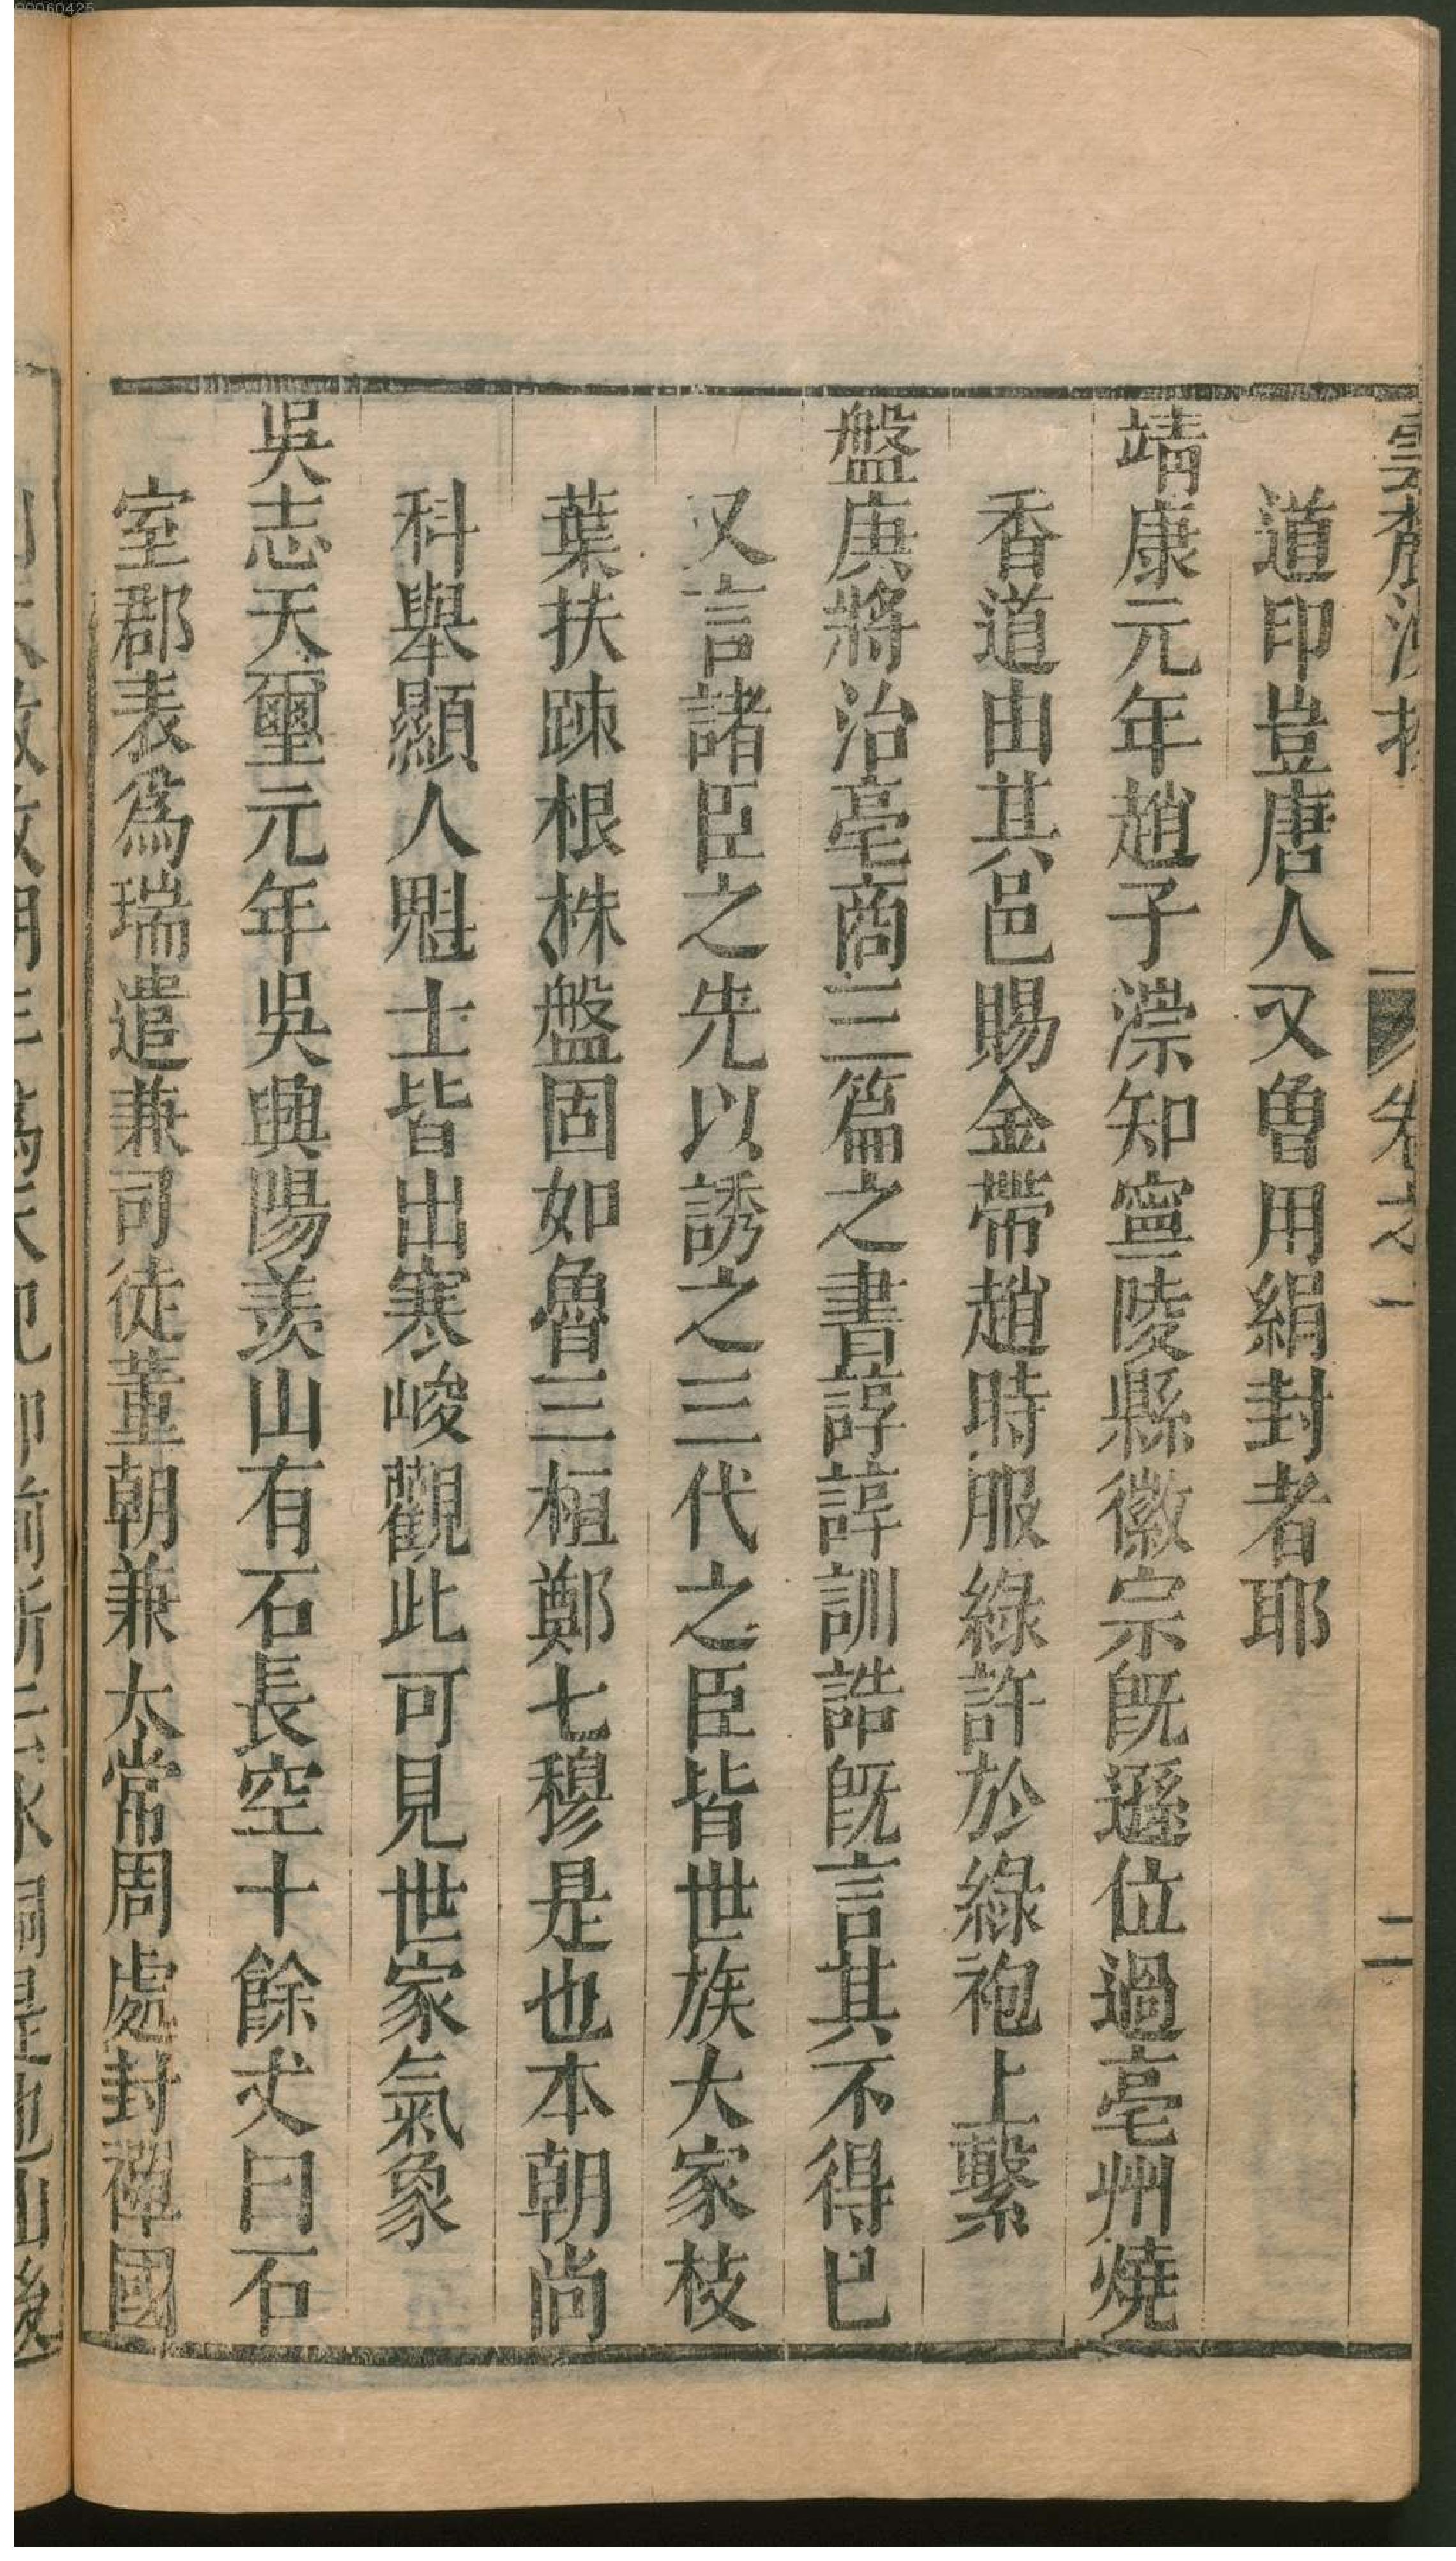 90060425
雲麓漫抄
卷之一
二
道印豈唐人又曾用絹封者耶
靖康元年趙子漴知寧陵縣徽宗旣遜位過亳州燒
香道由其邑賜金帶趙時服綠許於綠袍上繫
盤庚將治亳商三篇之書諄諄訓誥旣言其不得已
又言諸臣之先以誘之三代之臣皆世族大家枝
葉扶踈根株盤固如魯三桓鄭七穆是也本朝尚
科舉顯人魁士皆出寒峻觀此可見世家氣象
吳志天璽元年吳興陽羨山有石長空十餘丈曰石
室郡表爲瑞遣兼司徒董朝兼太常周處封禪國